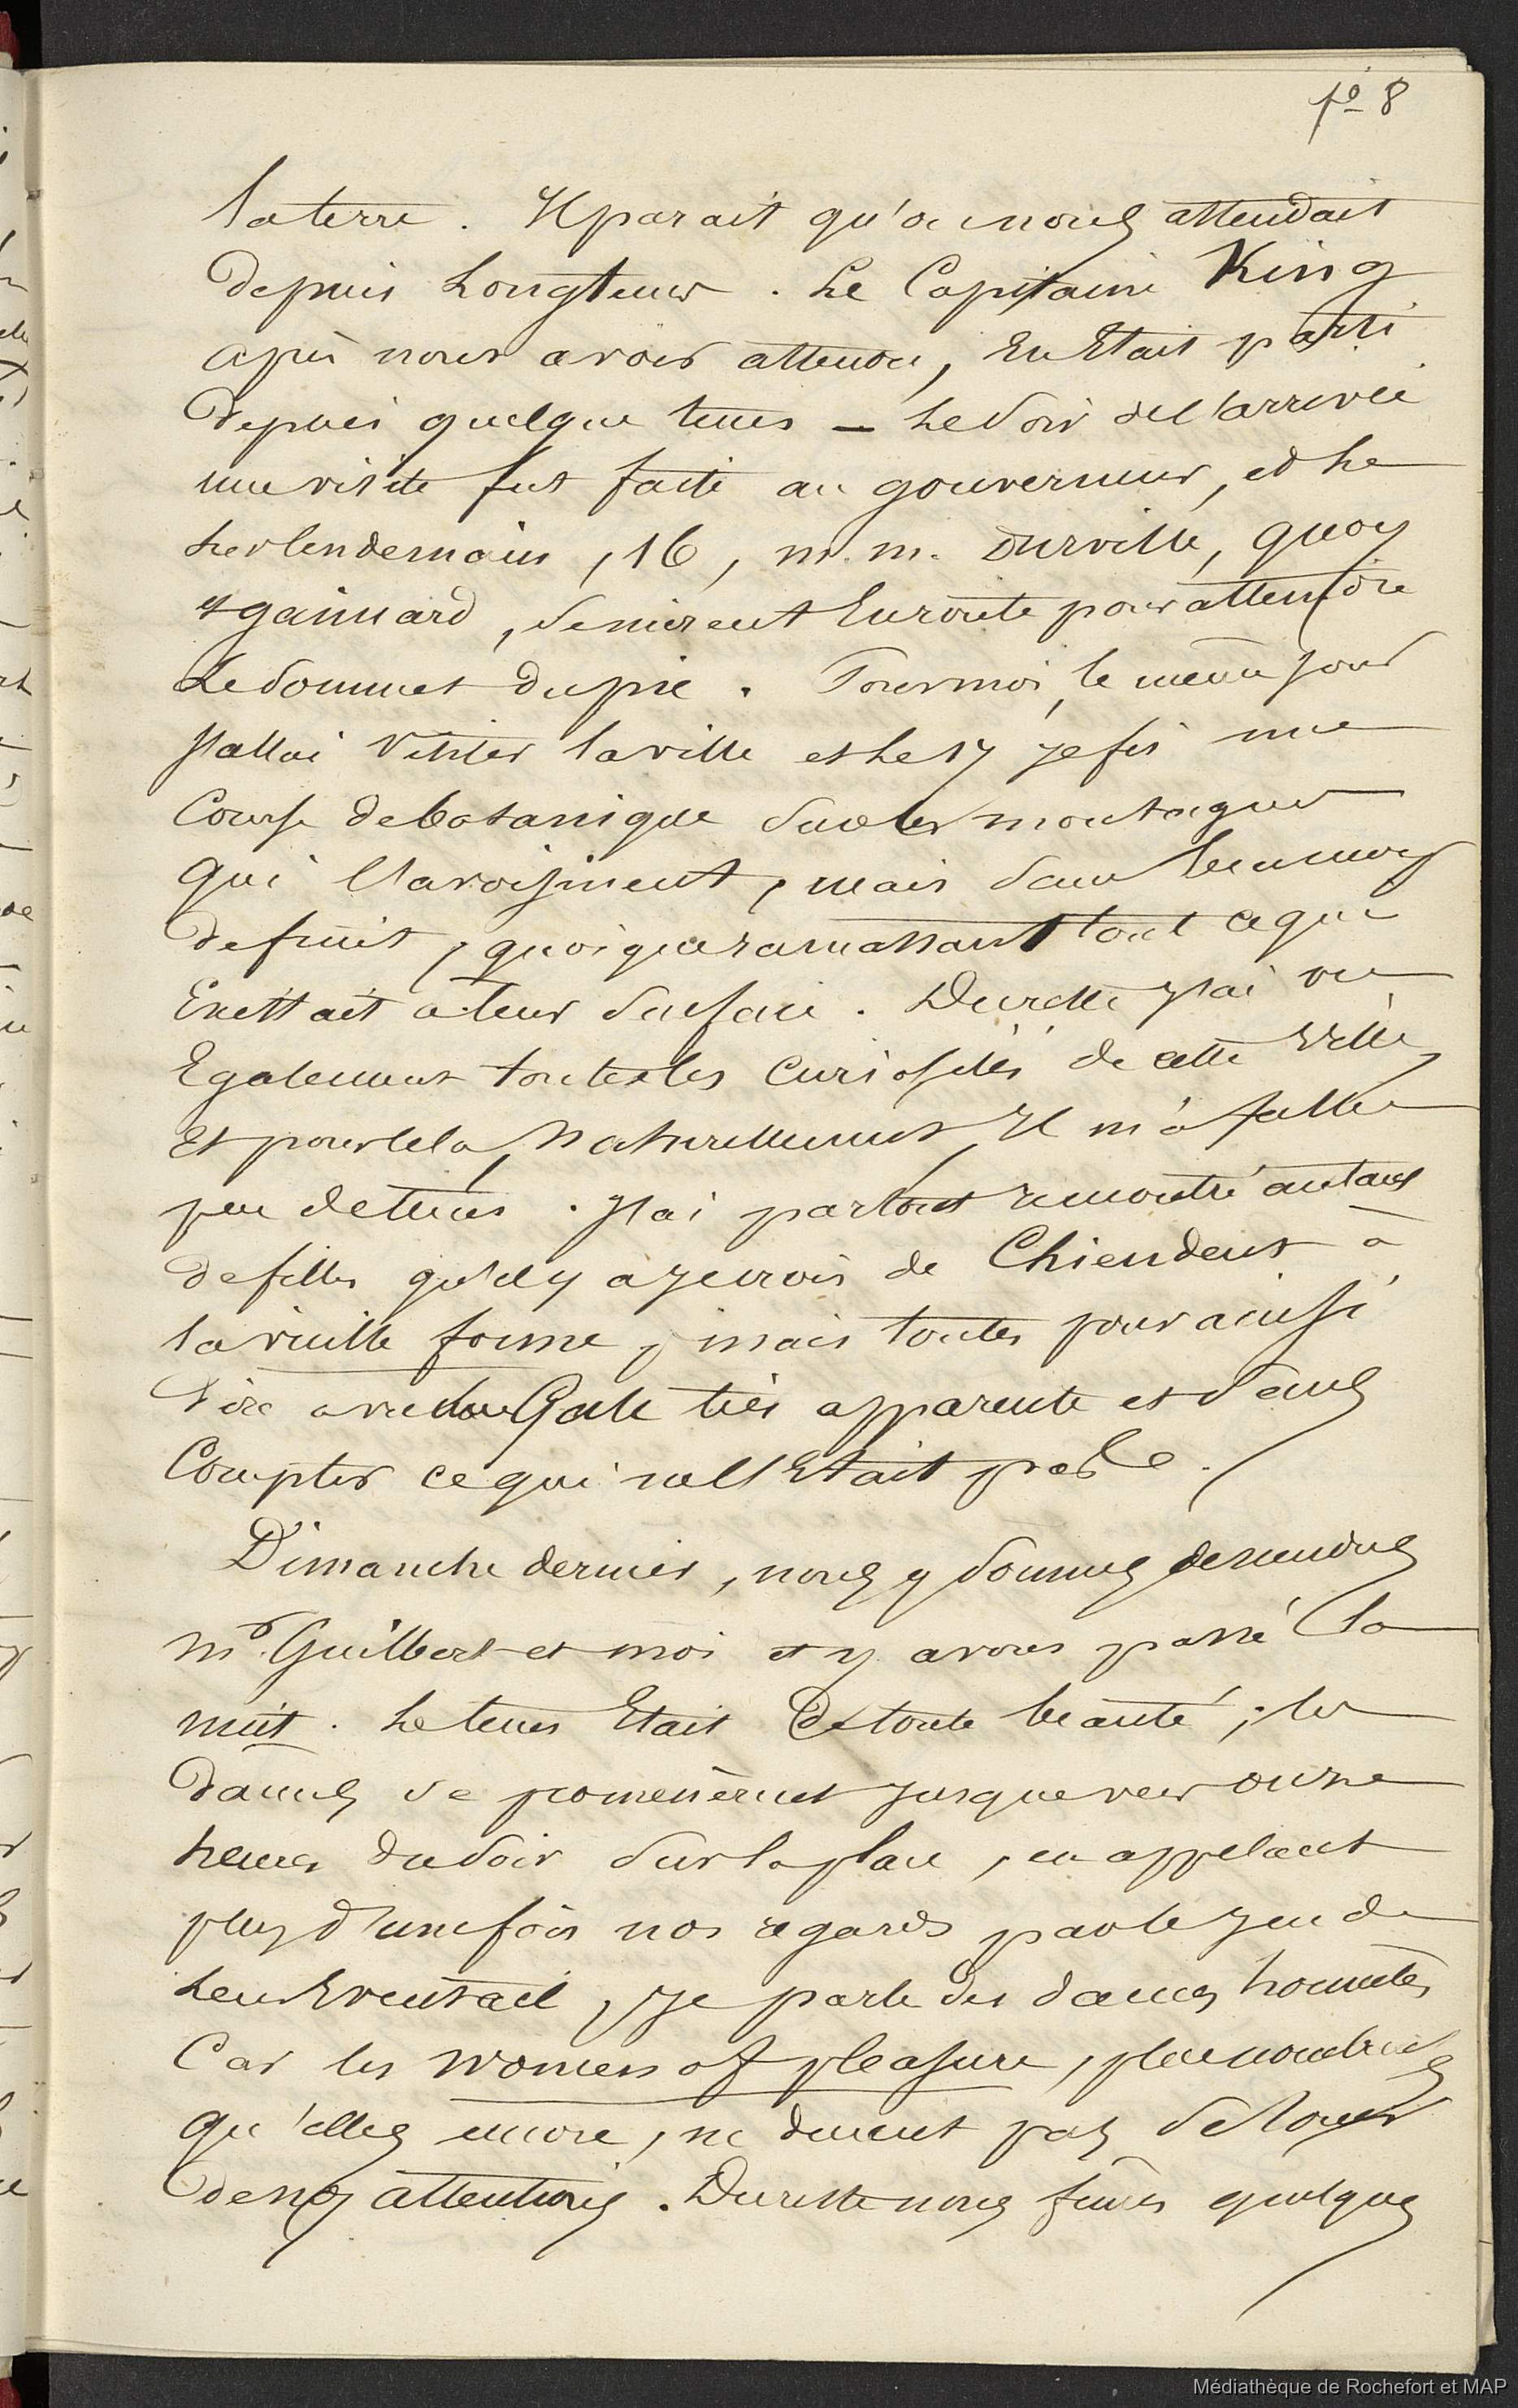 fo 8
la terre. Il parait qu'on nous attendait
depuis Longtems. Le Capitaine King
après nous avoir attendu, En Etait parti
depuis quelque tems – Le Soir de l'arrivée
une visite fut faite au gouverneur, et Le
Lendemain, 16, m.m. Durville, quoy
et gaimard, se mirent En route pour atteindre
Le Sommet du pic. Pour moi, le même jour
J'allai Visiter la ville et Le 17 je fis une
Course de botanique sur les montagnes
qui l'avoisinent, mais sans beaucoup
de fruit, quoique ramassant tout ce que
Exettait a leur surface. Du reste j'ai vu
Egalement toutes les curiosités de cette ville,
Et pour cela, Naturellement, Il m'a fallu
peu de tems. J'ai partout rencontré autant
de filles qu'il y a je crois de Chiendent à
la vieille forme, mais toutes pour ainsi
dire avec la Gale très apparente et sans
Compter ce qui ne l'Etait pas.
Dimanche dernier, nous y sommes descendus
Mr. Guilbert et moi et y avons passé la
nuit. Le tems Etait de toute beauté; les
dames se promenèrent jusque vers onze
heures du Soir Sur la place, en appelant
plus d'une fois nos regards par le jeu de
Leur Eventail, je parle des dames honnêtes
Car les women of pleasure, plus nombreuses
qu'elles encore, ne durent pas se louer
de nos attentions. Du reste nous fumes quelques
Médiathèque de Rochefort et MAP